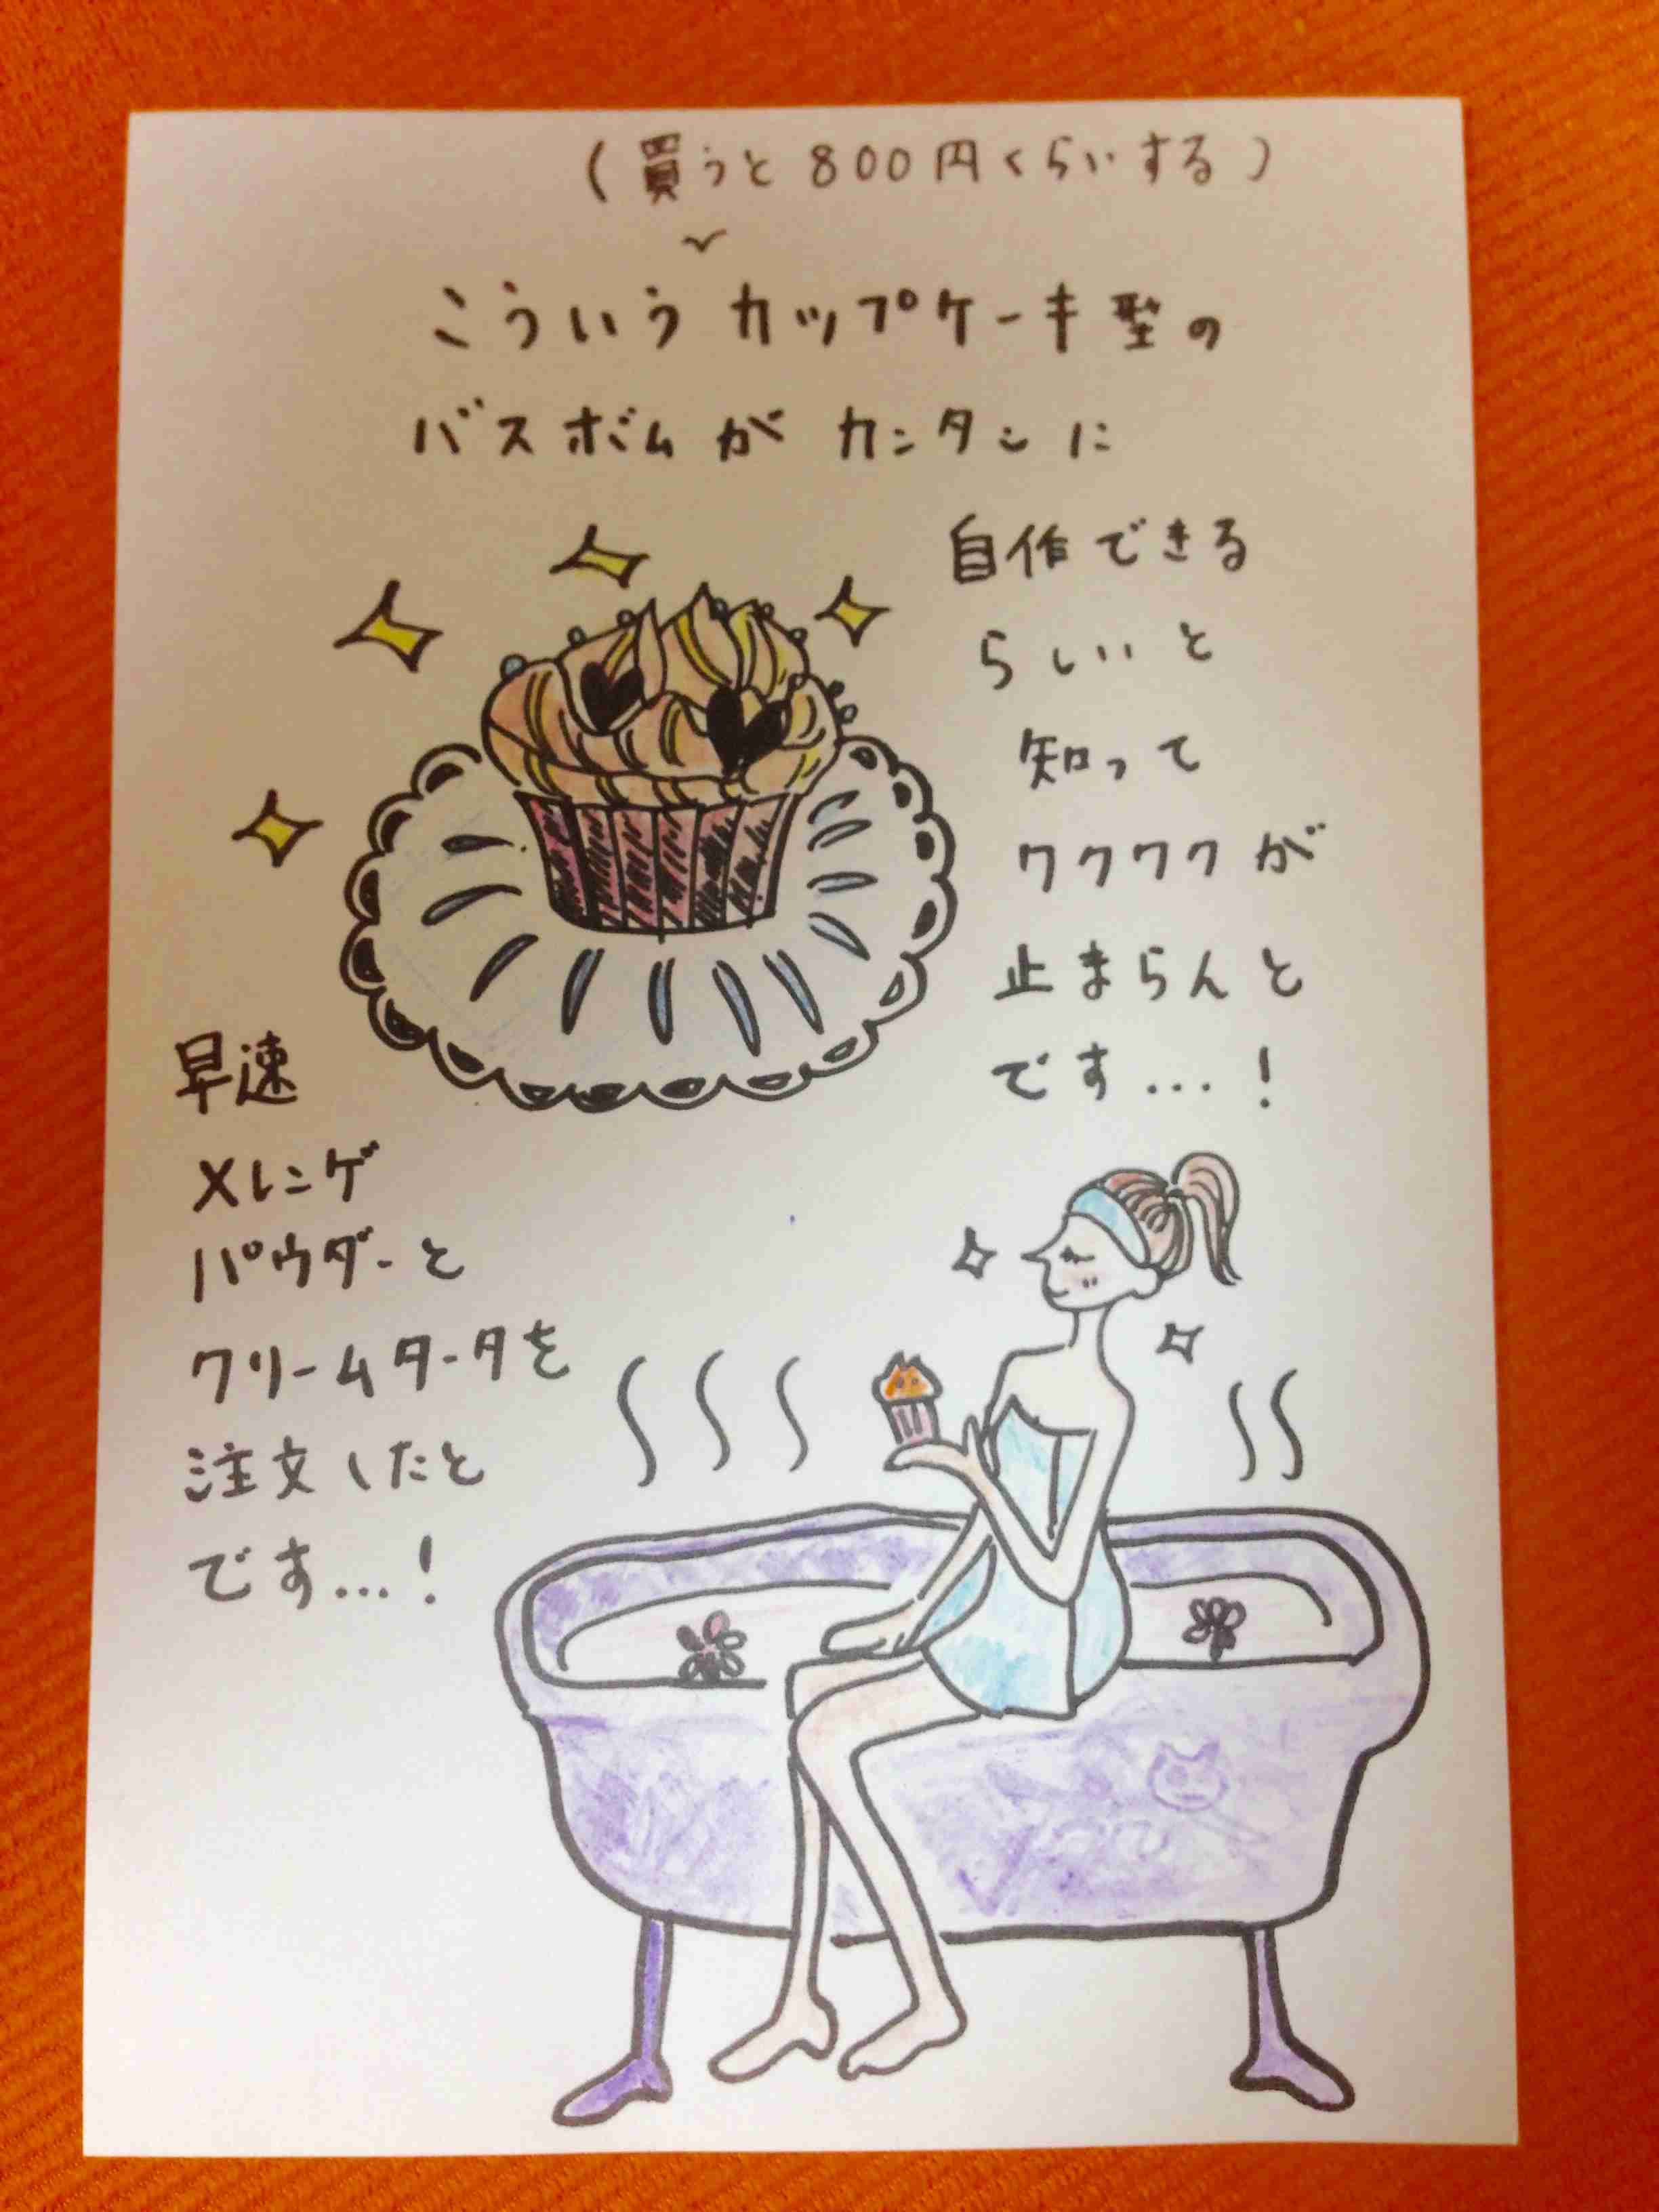 (買うと800円くらいする)
こういうカップケーキ型の
バスボムがカンタンに
自作できる
らしいと
知って
ワクワクが
止まらんと
です...!
早速
メレンゲ
パウダーと
クリームタータを
注文したと
です...!